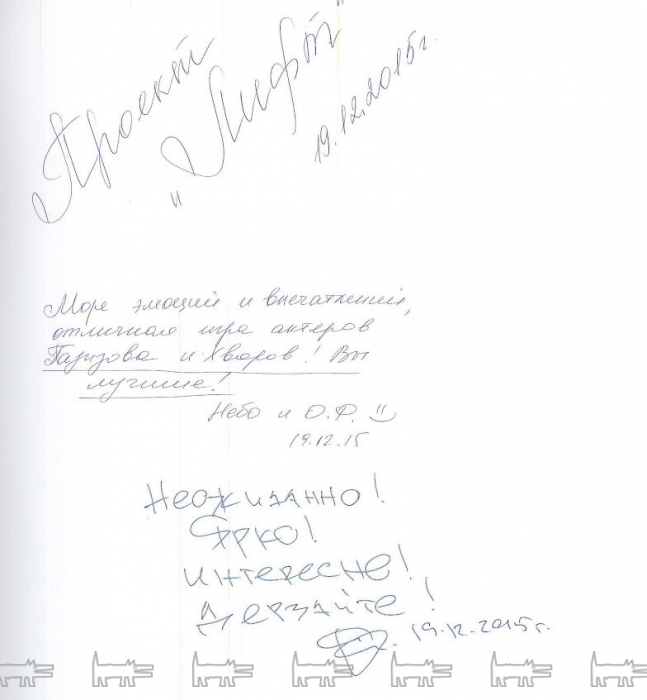 Проект
"Лифт"
19.12.2015г.
Море эмоций и впечатлений,
отличная игра актеров
Паризова и Хворов! Вы
лучшие!
Небо и О.Ф.
19.12.15
Неожиданно!
Ярко!
интересне!
Дерзайте!
19.12.2015г.